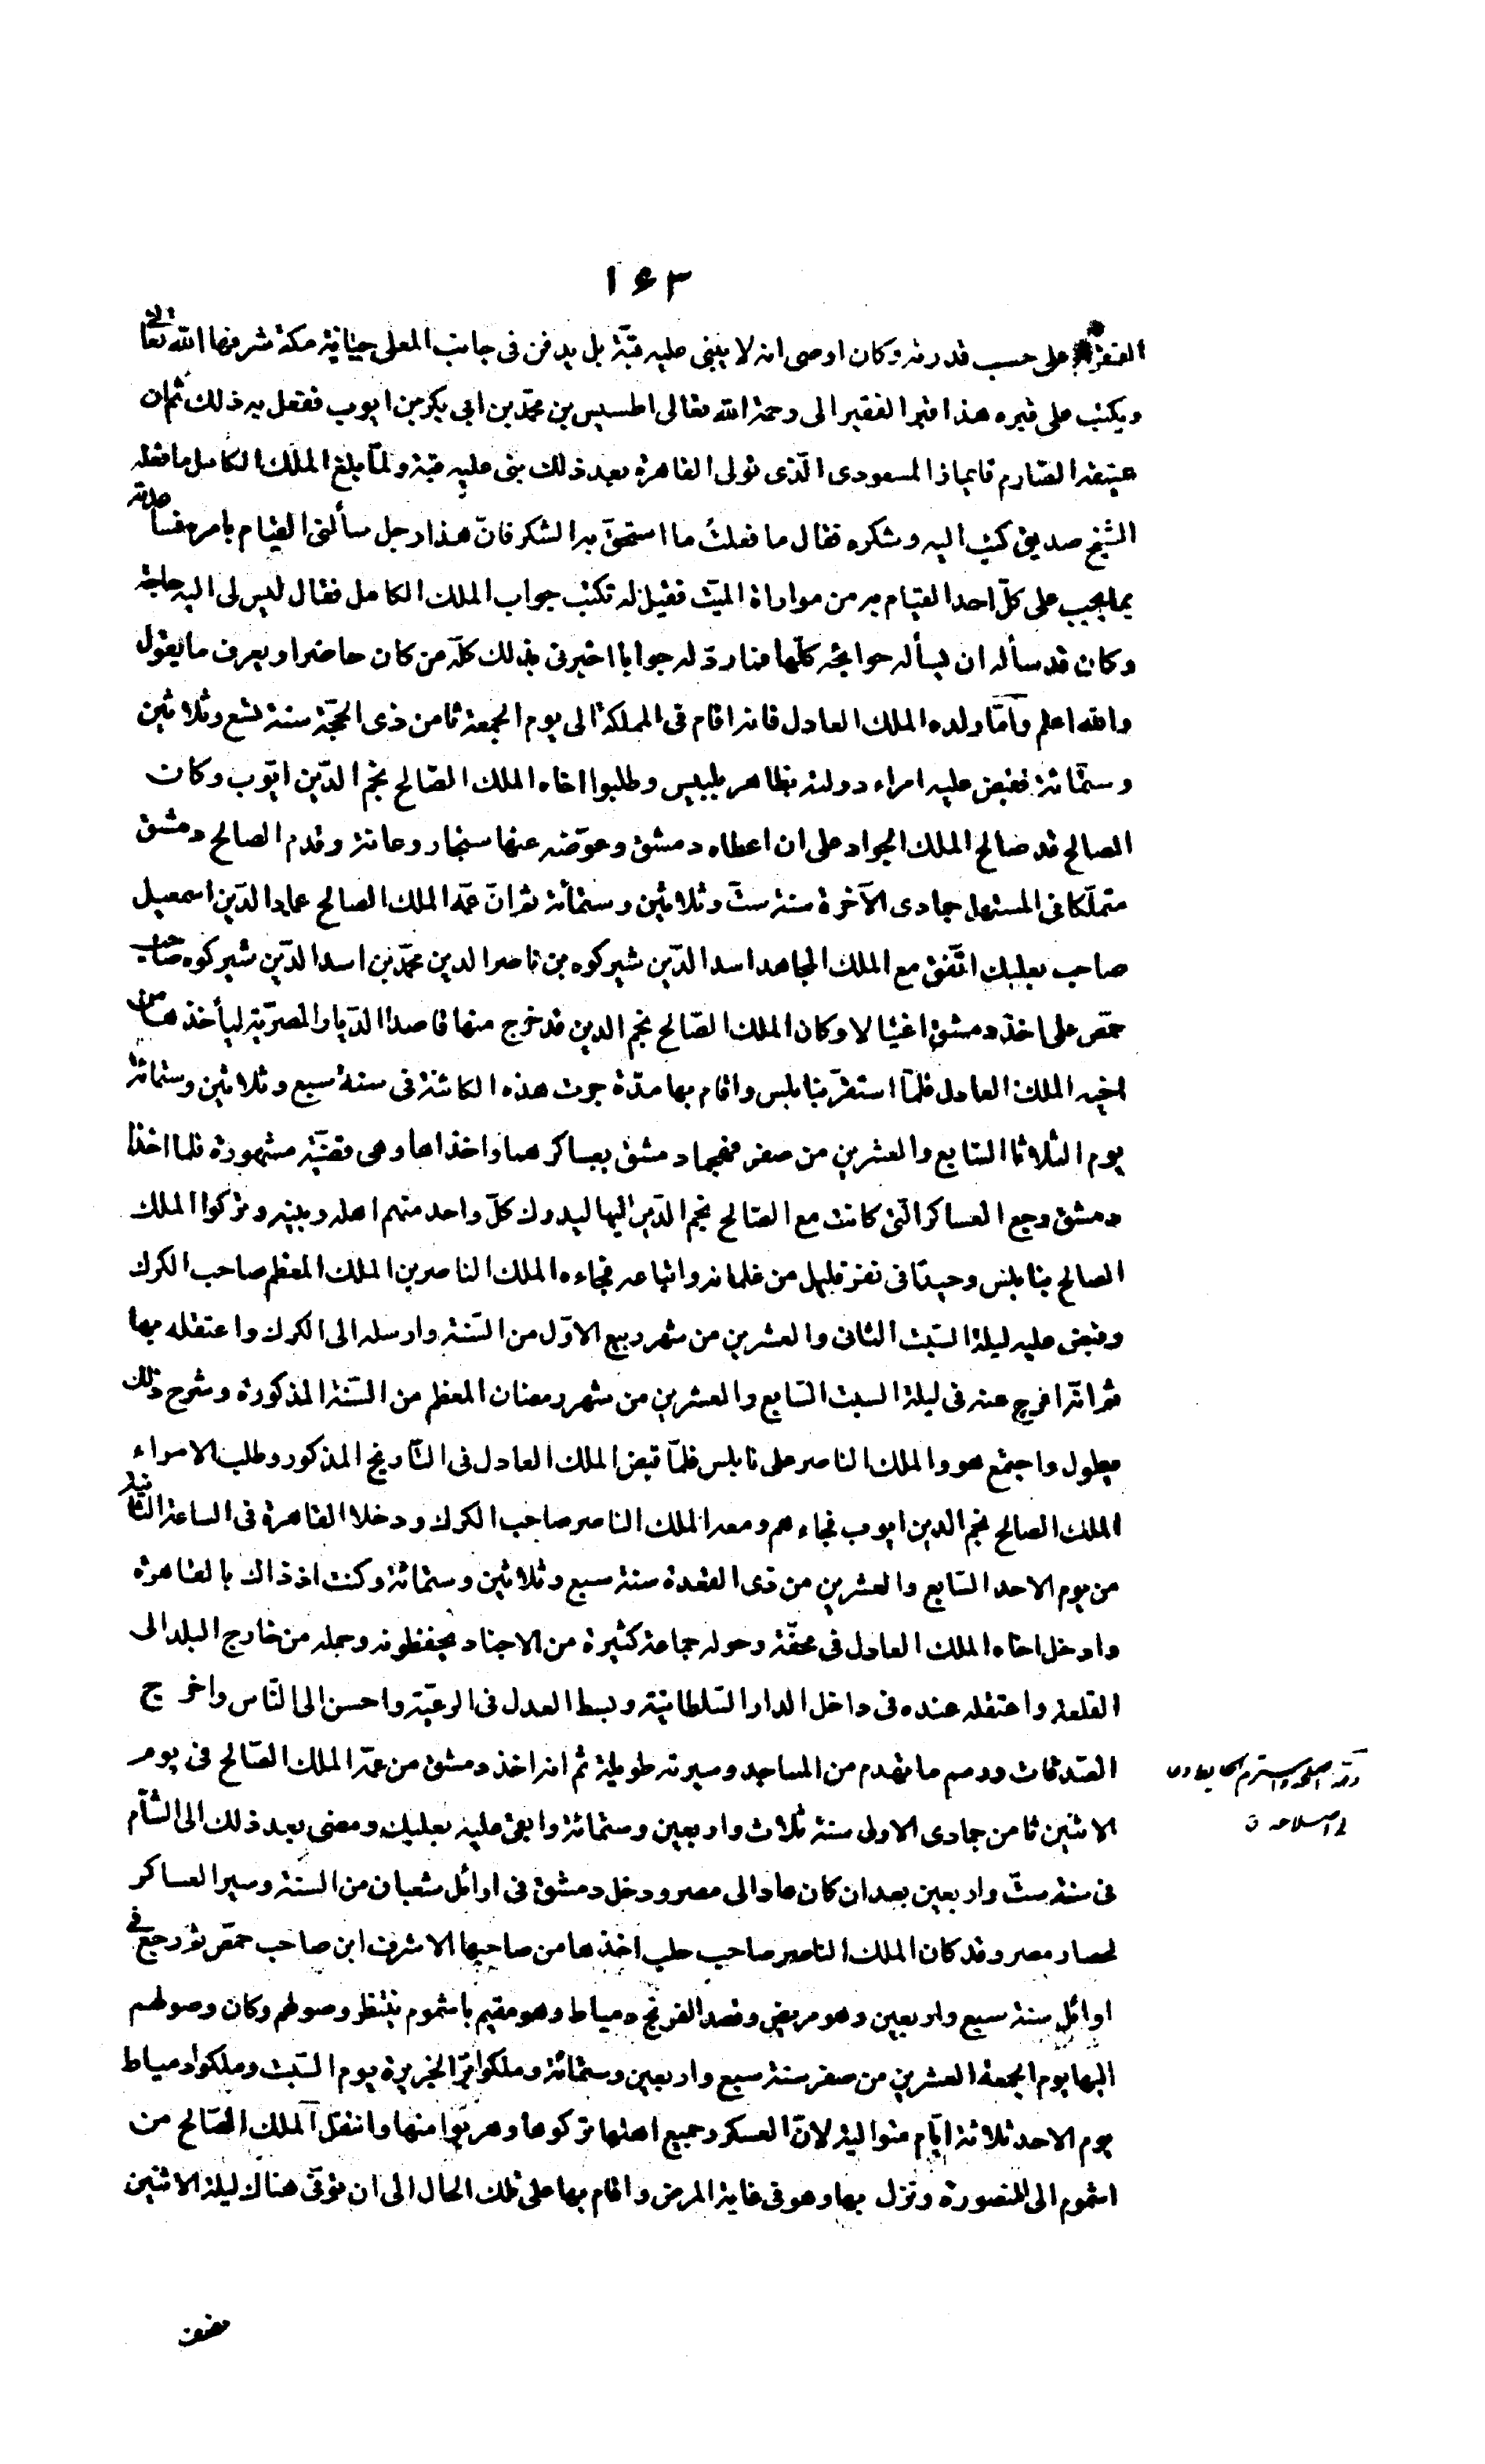 ١٦٣
الفقراء على حسب قدرته وكان اوصى انه لا يبنى عليه قبّة بل يدفن فى جانب المعلى جبّانة مكة شرفها الله تعالى
ويكتب على قبره هذا قبر الفقير الى رحمة الله تعالى اطسيس بن محمّد بن ابى بكر بن ايوب ففعل به ذلك ثم ان
عتيقه الصّارم قايماز المسعودى الّذى تولى القاهرة بعد ذلك بنى عليه قبة ولمّا بلغ الملك الكامل ما فعله
الشّيخ صديق كتب اليه وشكره فقال ما فعلتُ ما استحقّ به الشكر فانّ هذا رجل سألنى القيام بامره فساعدته
بما يجب على كلّ احد القيام به من مواراة الميّت فقيل له تكتب جواب الملك الكامل فقال ليس لى اليه حاجة
وكان قد سأله ان يسأله حوايجه كلّها فما ردّ له جوابا اخبرنى بذلك كلّه من كان حاضرا ويعرف ما يقول
والله اعلم وامّا ولده الملك العادل فانه اقام فى المملكة الى يوم الجمعة ثامن ذى الحجّة سنة تسع وثلاثين
وستّمائة فقبض عليه امراء دولته بظاهر بلبيس وطلبوا اخاه الملك الصّالح نجم الدّين ايّوب وكان
الصالح قد صالح الملك الجواد على ان اعطاه دمشق وعوّضه عنها سنجار وعانة وقدم الصالح دمشق
متملّكا فى المستهل جمادى الآخرة سنة ستّ وثلاثين وستمائة ثم انّ عمّه الملك الصالح عماد الدّين اسمعيل
صاحب بعلبك اتّفق مع الملك المجاهد اسد الدّين شيركوه بن ناصر الدين محمّد بن اسد الدّين شيركوه صاحب
حمّص على اخذ دمشق اغتيالا وكان الملك الصّالح نجم الدين قد خرج منها قاصدا الدّيار المصريّة ليأخذها من
اخيه الملك العادل فلمّا استقرّ بنابلس واقام بها مدّة جرت هذه الكائنة فى سنة سبع وثلاثين وستمائة
يوم الثلاثا السّابع والعشرين من صفر فهجما دمشق بعساكرهما واخذاها وهى قضيّة مشهورة فلما اخذا
دمشق رجع العساكر الّتى كانت مع الصّالح نجم الدّين اليها ليدرك كلّ واحد منهم اهله وبيته وتركوا الملك
الصالح بنابلس وحيدًا فى نفر قليل من غلمانه واتباعه فجاءه الملك الناصر بن الملك المعظم صاحب الكرك
وقبض عليه ليلة السّبت الثانى والعشرين من شهر ربيع الاوّل من السّنة وارسله الى الكرك واعتقله بها
ثم انّه افرج عنه فى ليلة السبت السّابع والعشرين من شهر رمضان المعظم من السّنة المذكورة وشرح ذلك
يطول واجتمع هو والملك الناصر على نابلس فلمّا قبض الملك العادل فى التّاريخ المذكور وطلب الامراء
الملك الصالح نجم الدين ايوب فجاءهم ومعه الملك الناصر صاحب الكرك ودخلا القاهرة فى الساعة الثانية
من يوم الاحد السّابع والعشرين من ذى القعدة سنة سبع وثلاثين وستمائة وكنت اذ ذاك بالقاهرة
وادخل اخاه الملك العادل فى محفّة وحوله جماعة كثيرة من الاجناد يحفظونه وحمله من خارج البلد الى
القلعة واعتقله عنده فى داخل الدار السّلطانيّة وبسط العدل فى الرعيّة واحسن الى النّاس واخرج
الصّدقات ورمم ما تهدم من المساجد وسيرته طويلة ثم انه اخذ دمشق من عمّه الملك الصّالح فى يوم
الاثنين ثامن جمادى الاولى سنة ثلاث واربعين وستمائة وابقى عليه بعلبك ومضى بعد ذلك الى الشّام
فى سنة ستّ واربعين بعد ان كان عاد الى مصر ودخل دمشق فى اوائل شعبان من السنة وسير العساكر
لحصار مصر وقد كان الملك الناصر صاحب حلب اخذها من صاحبها الاشرف ابن صاحب حمّص ثم رجع فى
اوائل سنة سبع واربعين وهو مريض وقصد الفرنج دمياط وهو مقيم باشموم ينتظر وصولهم وكان وصولهم
اليها يوم الجمعة العشرين من صفر سنة سبع واربعين وستمائة وملكوا برّ الجزيرة يوم السّبت وملكوا دمياط
يوم الاحد ثلاثة ايّام متوالية لانّ العسكر وجميع اهلها تركوها وهربوا منها وانتقل الملك الصّالح من
اشموم الى المنصورة ونزل بها وهو فى غاية المرض واقام بها على تلك الحال الى ان توفّى هناك ليلة الاثنين